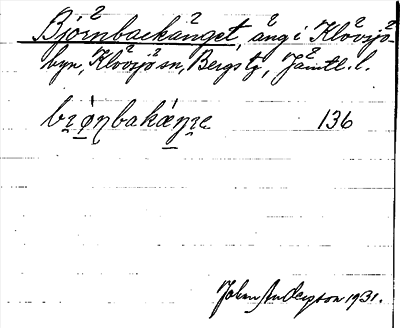 Björnbackänget, äng i Klövsjö
byn, Klövsjö sn, Bergs tg, Jämtl. l.
136
Johan Anderzson 1931.